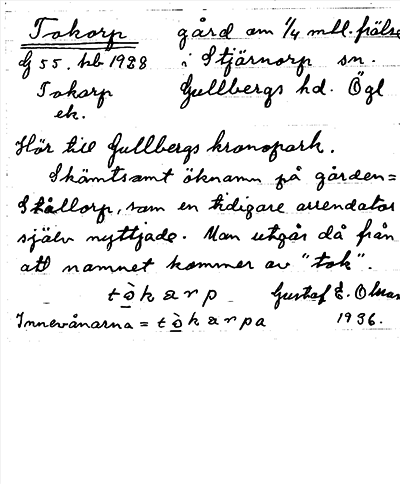 Tokorp gård om 1/4 mtl. frälse
G 55. kb 1928 i Stjärnorp sn.
Tokorp Gullbergs hd. Ögl
ek.
Hör till Gullbergs kronopark.
Skämtsamt öknamn på gården=
Stållorp, som en tidigare arrendator
själv nyttjade. Man utgår då från
att namnet kommer av "tok".
tòkarp Gustaf E. Olsson
Innevånarna = tòkarpa 1936.